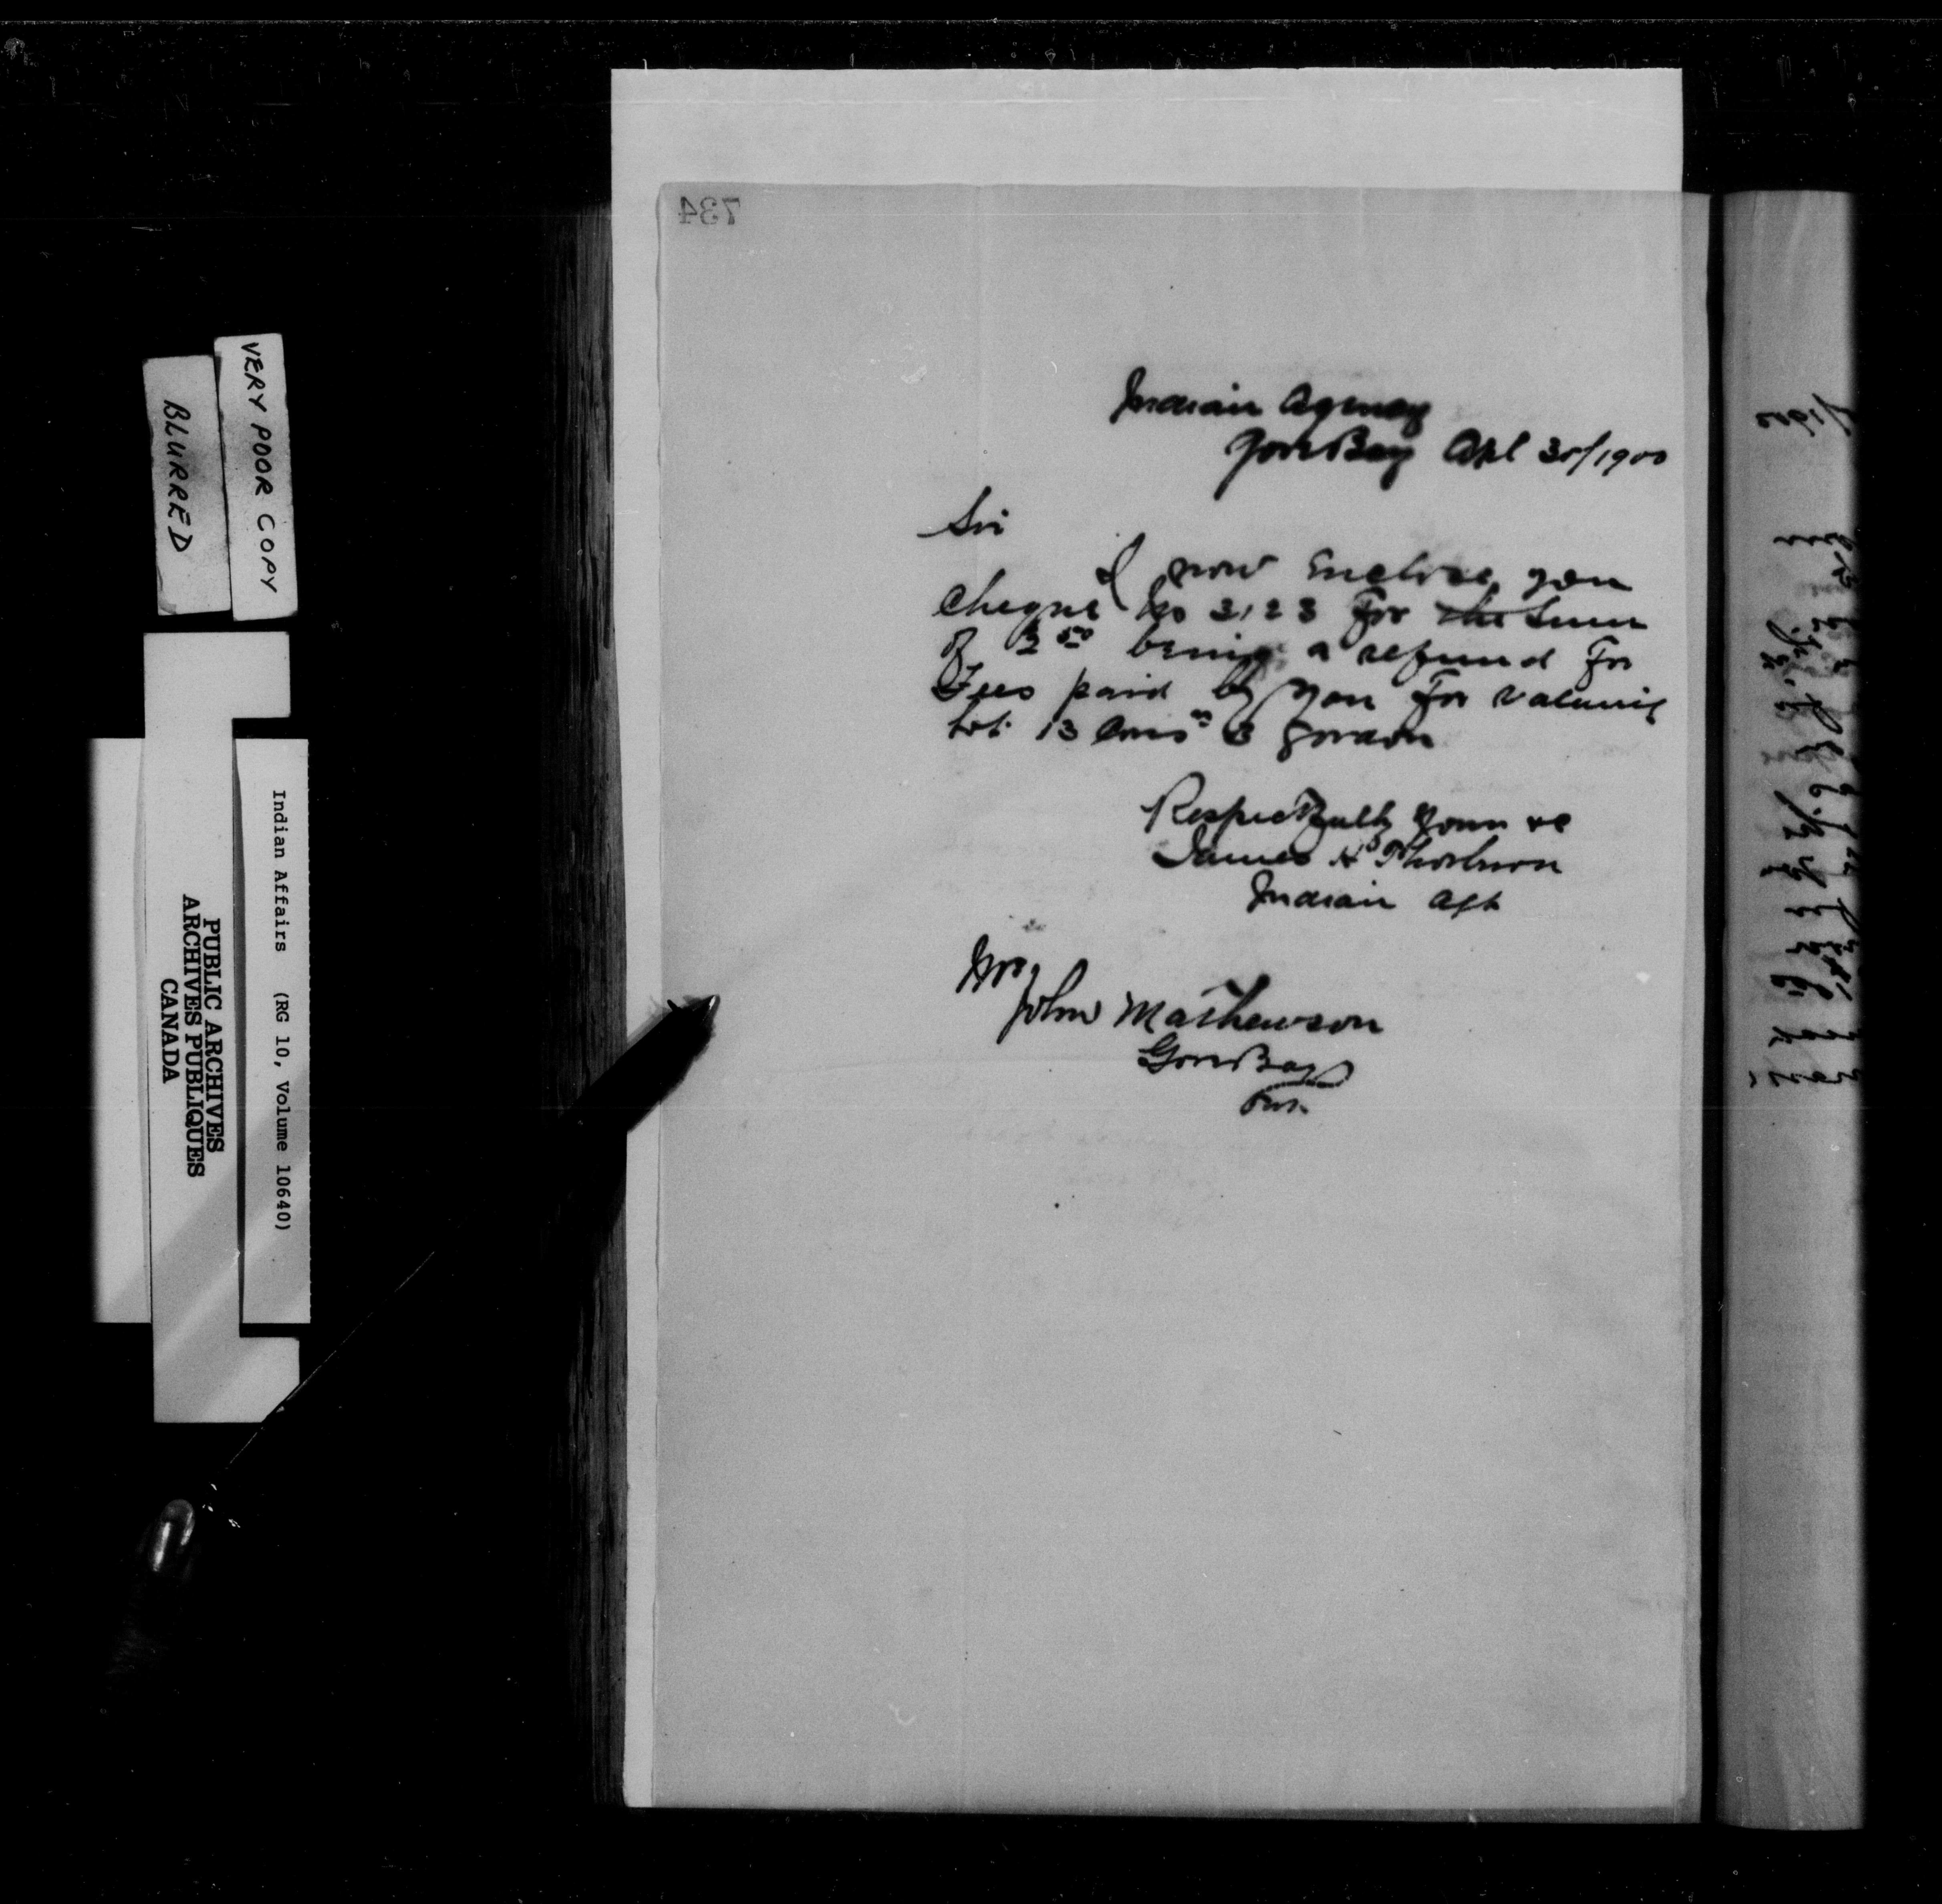 734
Indian Agency
Gore Bay Apl 30/1900
Sir
I now Enclose you
Cheque No 3123 For the Sum
of 2 50 being a refund For
Fees paid by you For valuing
Lot 13 Cons 3 Gordon
Respectfully Yours &c
James H Thorburn
Indian Agt
John Mathewson
Gore Bay
Ont.
VERY POOR COPY
BLURRED
Indian Affairs (RG 10, Volume 10640)
PUBLIC ARCHIVES
ARCHIVES PUBLIQUES
CANADA